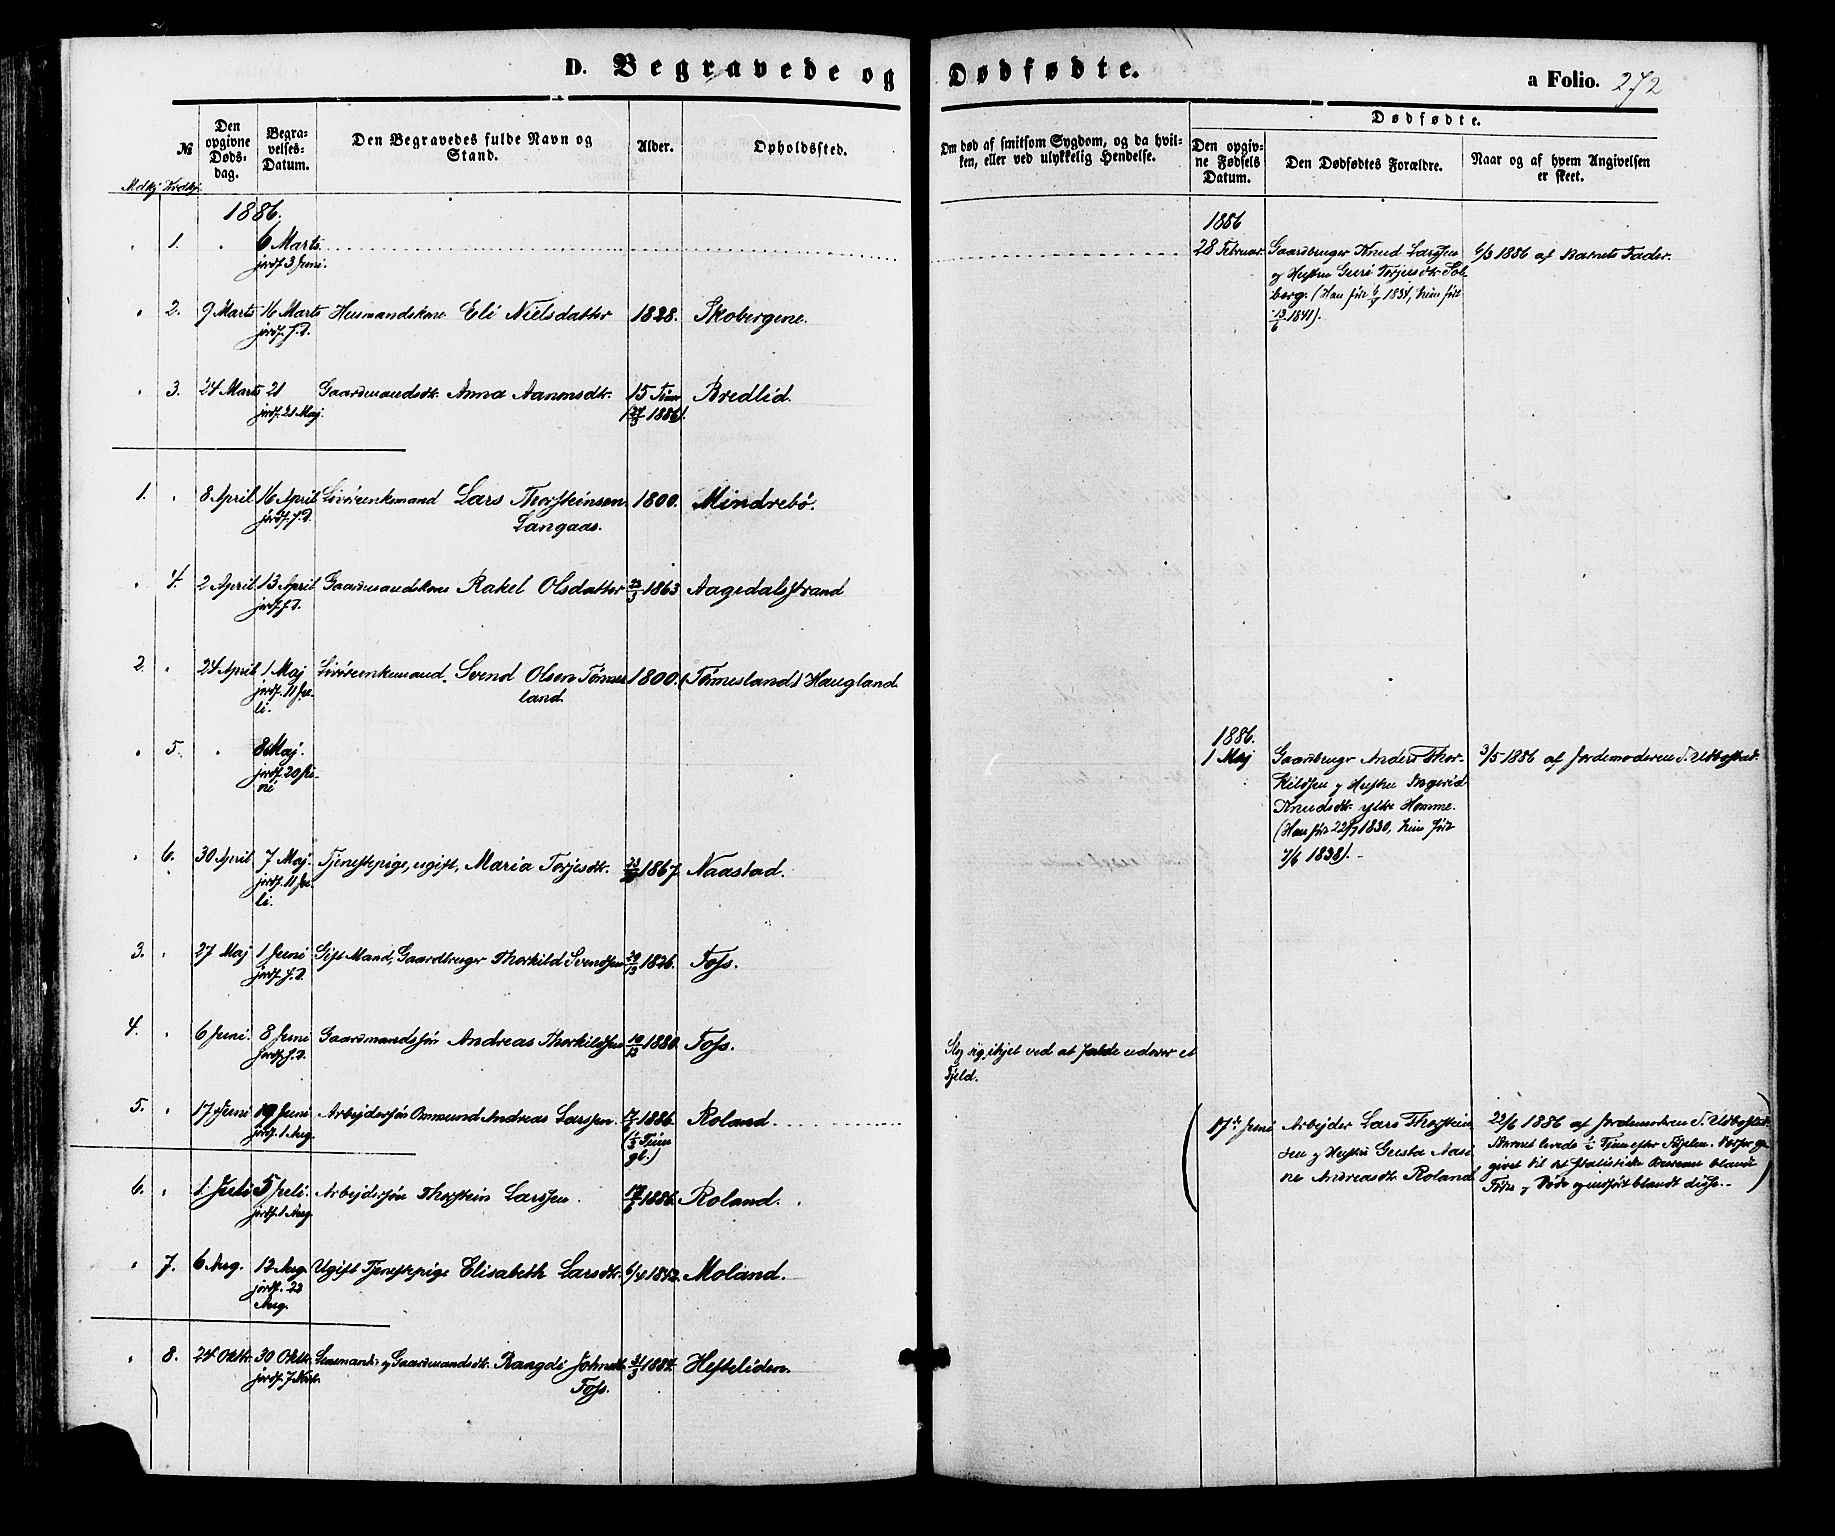 D. Begravede og Dødfødte.
a Folio. 272
№
Mdkj Kvdkj.
Den opgivne Døds-dag.
Begra-velses-Datum.
Den Begravedes fulde Navn og Stand.
Alder.
Opholdssted.
Om død af smitsom Sygdom, og da hvil-ken, eller ved ulykkelig Hendelse.
Dødfødte.
Den opgiv-ne Fødsels Datum.
Den Dødfødtes Forældre.
Naar og af hvem Angivelsen er skeet.
1886.
1. 6 Marts
jordf. 3 Juni.
1886
28 Februar. Gaardbruger Knud Larssen 6/3 1886 af Barnets Fader.
og Hustru Guri Torjersdtr.
berg. (Han født 1834, hun født
13/6 1841).
2. 9 Marts 16 Marts Husmandskone Eli Nielsdatter 1828. Skobergene.
jordf. s.D.
3. 24 Marts 21 Gaardmandsdtr. Anna Aanonsdtr. 15 Timer Bredlid.
jordf. 21 Maj. 1886).
1. 8 April 16 April Livöreenkemand Lars Thorsteinsen 1800. Mindrebö.
jordf. s.D. Langaas.
4. 2 April 13 April Gaardmandskone Rakel Olsdatter 1863 Aagedalsstrand
jordf. s.D.
2. 24 April 1 Maj Livöreenkemand. Svend Olsen Tömes 1800. (Tömesland) Haugland
jordf. 11 Ju- land.
li.
5. 8 Maj.
jordf. 20 Ju-
ni
1886.
1 Maj Gaardbrugr Anders Thor- 3/5 1886 af Jordemoderen S. Udbostad.
kildsen og Hustru Ingerid
Knudsdtr. ytre Homme.
(Han født 22/7 1830, hun født
7/6 1838).-
6. 30 April 7 Maj. Tjenestepige, ugift, Maria Torjesdtr. 1867. Naastad.
jordf. 11 Ju-
li.
3. 27 Maj 1 Juni Gift Mand, Gaardbruger Thorkild Svendsen 1826. Foss.
jordf. s.D.
4. 6 Juni. 8 Juni Gaardmandssön Andreas Thorkildsen 1880. Foss.
jordf. s.D.
Slog sig ihjel ved at falde udover et
Fjeld.
5. 17 Juni 19 Juni Arbejdersön Ommund Andreas Larssen. 1886. Roland.
jordf. 1 Aug. (½ Time
gl.)
17de Juni Arbejder Lars Thorstein 22/6 1886 af Jordemoderen S. Udbostad.
sen og Hustru Gusta Aase Barnet levede ½ Time efter Födselen. Derfor op-
ne Andreasdtr. Roland givet til det statistiske Bureau blandt
Födte og Døde og indfört blandt disse.-
6. 1 Juli 5 Juli Arbejdersön Thorstein Larssen. 17/6 1886. Roland.
jordf. 1 Aug.
7. 6 Aug. 12 Aug. Ugift Tjenestepige Elisabeth Larsdtr. 6/4 1842. Moland.
jordf. 22
Aug.
8. 24 Oktbr. 30 Oktbr. Lensmands- og Gaardmandsdtr. Rangdi Johnsdtr. 1884. Hesteliden.
jordf. 7 Novb. Foss.